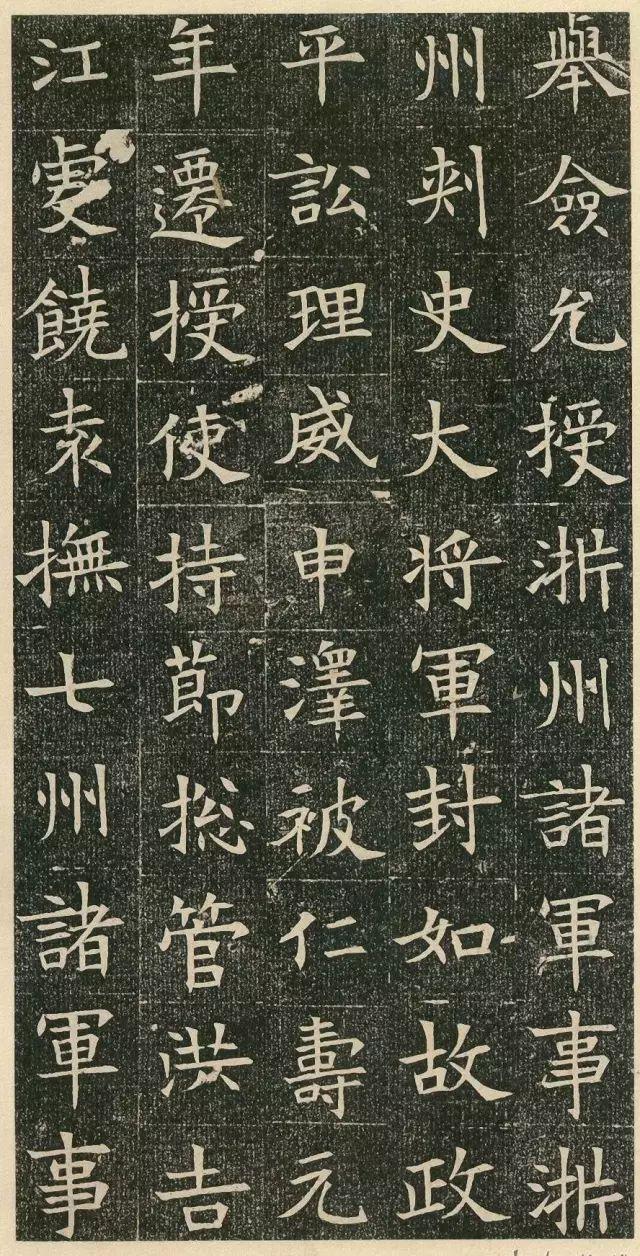 舉僉允授淅州諸軍事淅
州刾史大将軍封如故政
平訟理威申澤被仁壽元
年遷授使持節揔管洪吉
江虔饒袁撫七州諸軍事